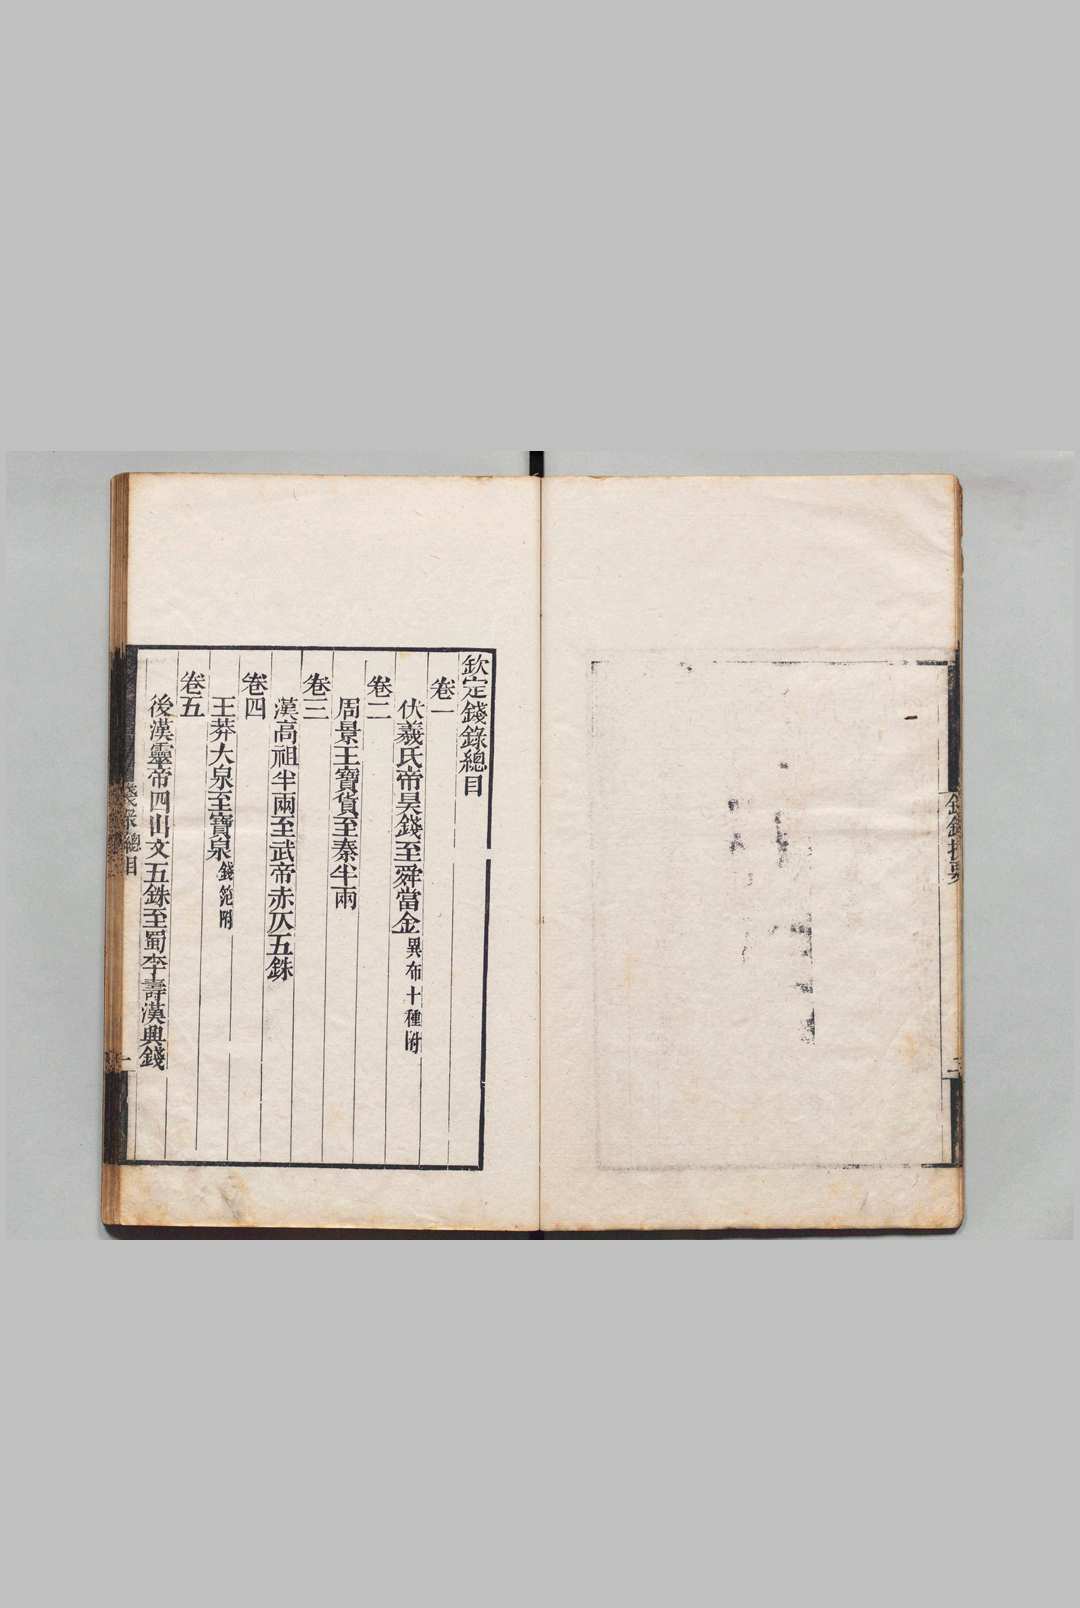 欽定錢錄總目
卷一
伏羲氏帝昊錢至舜當金異布十種附
卷二
周景王寶貨至秦半兩
卷三
漢高祖半兩至武帝赤仄五銖
卷四
王莽大泉至寶泉錢笵附
卷五
後漢靈帝四出文五銖至蜀李壽漢興錢
錢錄總目
一